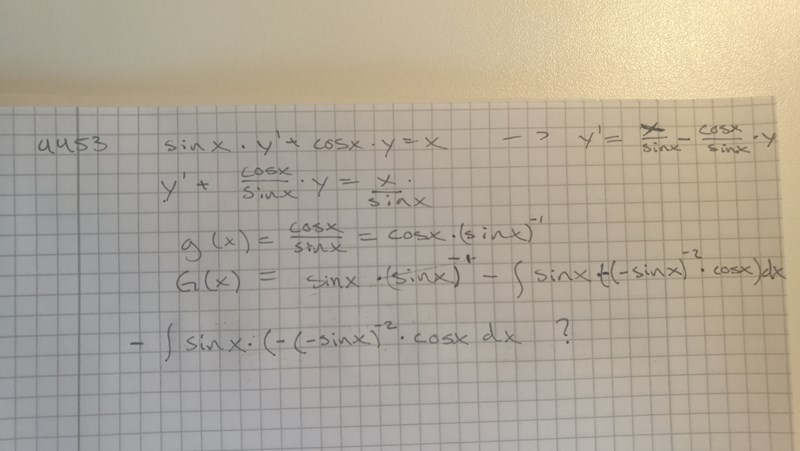 4453 sinx · y' + cosx · y = x -> y' = x/sinx - cosx/sinx · y
y' + cosx/sinx · y = x/sinx .
g(x) = cosx/sinx = cosx · (sinx)^-1
G(x) = sinx · (sinx)^-1 - ∫ sinx (-(-sinx)^-2 · cosx) dx
- ∫ sinx · (-(-sinx)^-2 · cosx dx ?